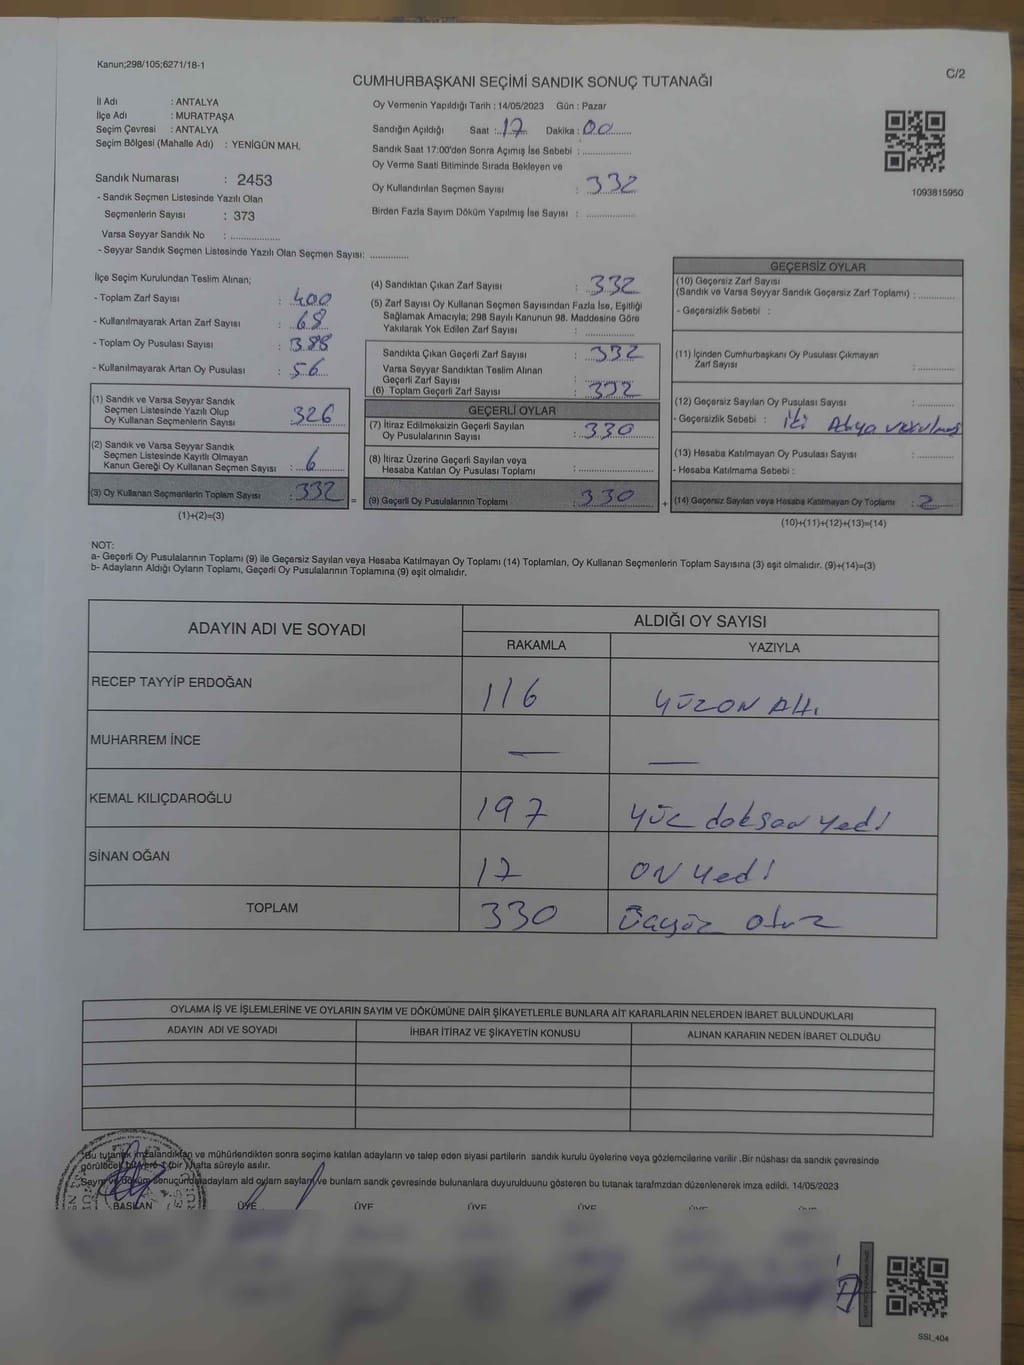 Kanun;298/105;6271/18-1
C/2
CUMHURBAŞKANI SEÇİMİ SANDIK SONUÇ TUTANAĞI
İl Adı : ANTALYA
İlçe Adı : MURATPAŞA
Seçim Çevresi : ANTALYA
Seçim Bölgesi (Mahalle Adı) : YENİGÜN MAH.
Sandık Numarası : 2453
- Sandık Seçmen Listesinde Yazılı Olan
Seçmenlerin Sayısı : 373
Varsa Seyyar Sandık No : ..................
- Seyyar Sandık Seçmen Listesinde Yazılı Olan Seçmen Sayısı: ..............
Oy Vermenin Yapıldığı Tarih : 14/05/2023 Gün : Pazar
Sandığın Açıldığı Saat : 17 Dakika : 00
Sandık Saat 17:00'den Sonra Açımış İse Sebebi : ..................
Oy Verme Saati Bitiminde Sırada Bekleyen ve
Oy Kullandırılan Seçmen Sayısı : 332
Birden Fazla Sayım Döküm Yapılmış İse Sayısı : ..................
1093815950
İlçe Seçim Kurulundan Teslim Alınan;
- Toplam Zarf Sayısı : 400
- Kullanılmayarak Artan Zarf Sayısı : 68
- Toplam Oy Pusulası Sayısı : 388
- Kullanılmayarak Artan Oy Pusulası : 56
(1) Sandık ve Varsa Seyyar Sandık
Seçmen Listesinde Yazılı Olup
Oy Kullanan Seçmenlerin Sayısı : 326
(2) Sandık ve Varsa Seyyar Sandık
Seçmen Listesinde Kayıtlı Olmayan
Kanun Gereği Oy Kullanan Seçmen Sayısı : 6
(3) Oy Kullanan Seçmenlerin Toplam Sayısı : 332
(1)+(2)=(3)
(4) Sandıktan Çıkan Zarf Sayısı : 332
(5) Zarf Sayısı Oy Kullanan Seçmen Sayısından Fazla İse, Eşitliği
Sağlamak Amacıyla; 298 Sayılı Kanunun 98. Maddesine Göre
Yakılarak Yok Edilen Zarf Sayısı : ..................
Sandıkta Çıkan Geçerli Zarf Sayısı : 332
Varsa Seyyar Sandıktan Teslim Alınan
Geçerli Zarf Sayısı : ..................
(6) Toplam Geçerli Zarf Sayısı : 332
GEÇERLİ OYLAR
(7) İtiraz Edilmeksizin Geçerli Sayılan
Oy Pusulalarının Sayısı : 330
(8) İtiraz Üzerine Geçerli Sayılan veya
Hesaba Katılan Oy Pusulası Toplamı : ..................
= (9) Geçerli Oy Pusulalarının Toplamı : 330 +
GEÇERSİZ OYLAR
(10) Geçersiz Zarf Sayısı
(Sandık ve Varsa Seyyar Sandık Geçersiz Zarf Toplamı) : ..............
- Geçersizlik Sebebi :
(11) İçinden Cumhurbaşkanı Oy Pusulası Çıkmayan
Zarf Sayısı : ..............
(12) Geçersiz Sayılan Oy Pusulası Sayısı : ..............
- Geçersizlik Sebebi : İki Adaya vurulmuş
(13) Hesaba Katılmayan Oy Pusulası Sayısı : ..............
- Hesaba Katılmama Sebebi :
(14) Geçersiz Sayılan veya Hesaba Katılmayan Oy Toplamı : 2
(10)+(11)+(12)+(13)=(14)
NOT:
a- Geçerli Oy Pusulalarının Toplamı (9) ile Geçersiz Sayılan veya Hesaba Katılmayan Oy Toplamı (14) Toplamları, Oy Kullanan Seçmenlerin Toplam Sayısına (3) eşit olmalıdır. (9)+(14)=(3)
b- Adayların Aldığı Oyların Toplamı, Geçerli Oy Pusulalarının Toplamına (9) eşit olmalıdır.
ADAYIN ADI VE SOYADI
ALDIĞI OY SAYISI
RAKAMLA YAZIYLA
RECEP TAYYİP ERDOĞAN 116 YÜZON Altı
MUHARREM İNCE — —
KEMAL KILIÇDAROĞLU 197 YÜZ doksan yedi
SİNAN OĞAN 17 ON yedi
TOPLAM 330 Üçyüz otuz
OYLAMA İŞ VE İŞLEMLERİNE VE OYLARIN SAYIM VE DÖKÜMÜNE DAİR ŞİKAYETLERLE BUNLARA AİT KARARLARIN NELERDEN İBARET BULUNDUKLARI
ADAYIN ADI VE SOYADI İHBAR İTİRAZ VE ŞİKAYETİN KONUSU ALINAN KARARIN NEDEN İBARET OLDUĞU
Bu tutanak imzalandıktan ve mühürlendikten sonra seçime katılan adayların ve talep eden siyasi partilerin sandık kurulu üyelerine veya gözlemcilerine verilir .Bir nüshası da sandık çevresinde
görülecek bir yere 1 (bir) hafta süreyle asılır.
Sayım ve döküm sonuçunda adayların ald oyların sayıları ve bunların sandık çevresinde bulunanlara duyurulduunu gösteren bu tutanak tarafımzdan düzenlenerek imza edildi. 14/05/2023
BAŞKAN ÜYE ÜYE ÜYE ÜYE
SSI_404